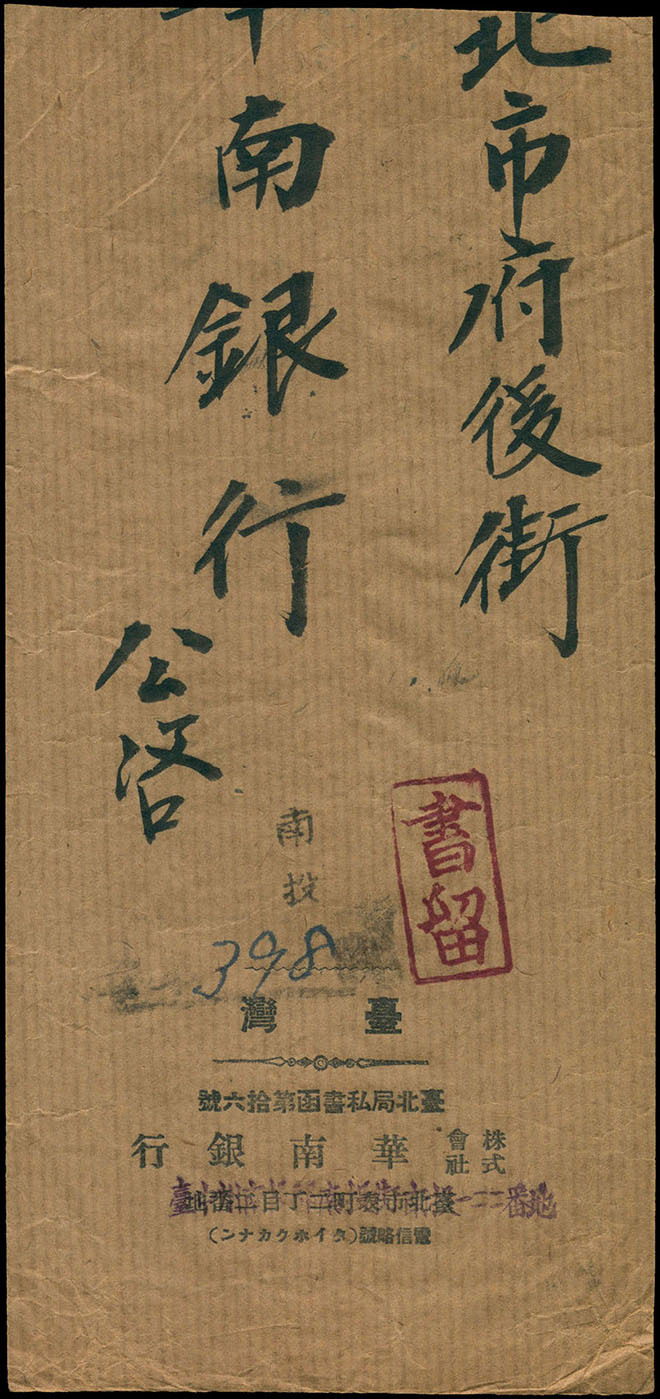 北市府後街
南銀行
公啓
書留
南投
398
臺灣
臺北局私書函第拾六號
株式會社 華南銀行
番地
電信略號(タイホクカナン)